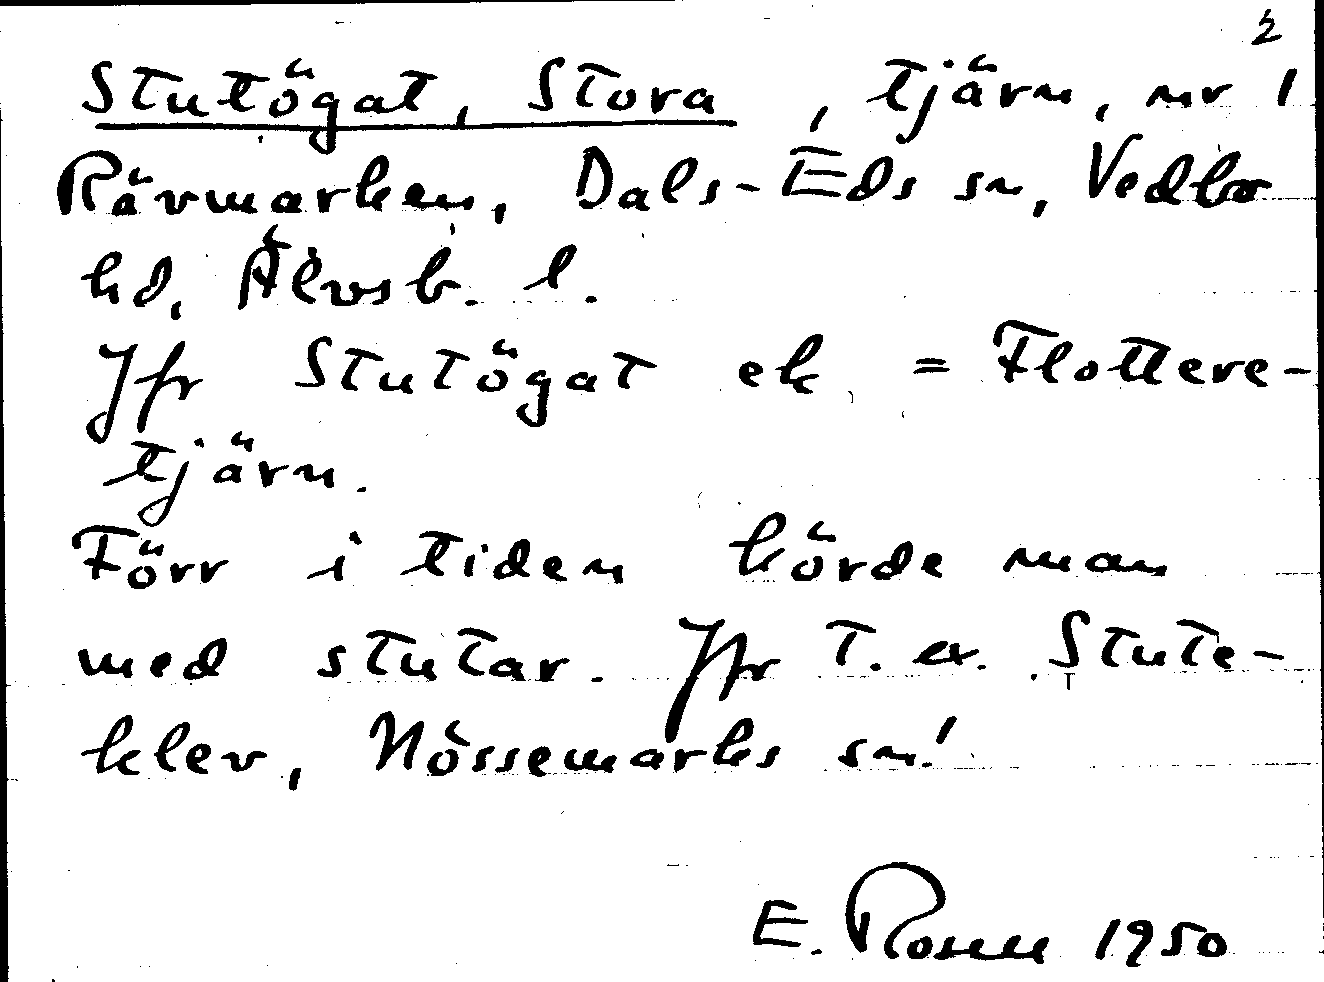 2
Stutögat, Stora, tjärn, nr 1
Rävmarken, Dals-Eds sn, Vedbo
hd, Älvsb. l.
Jfr Stutögat ek = Flottere-
tjärn.
Förr i tiden körde man
med stutar. Jfr t. ex. Stute-
klev, Nössemarks sn!
E. Rosell 1950